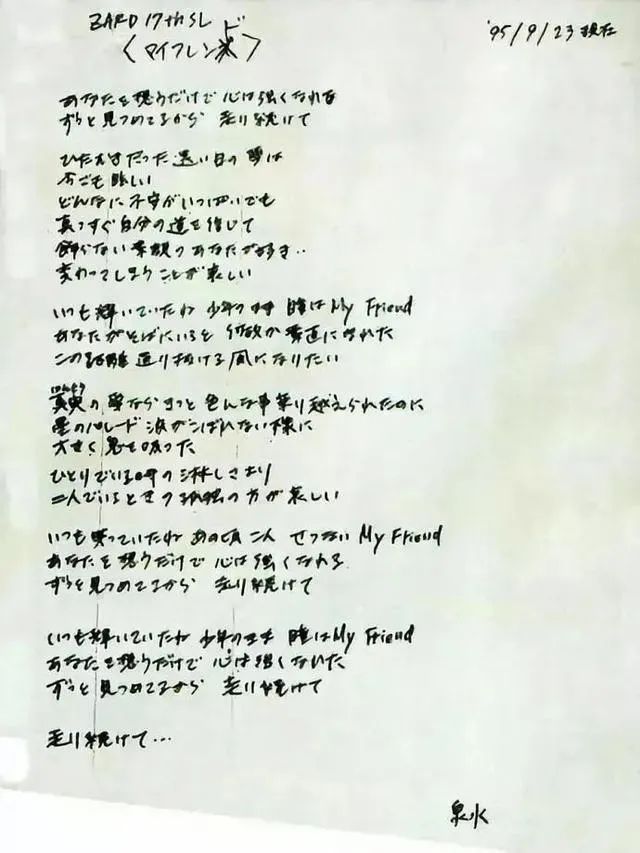 ZARD 17th SL
〈マイフレンド〉
'95/9/23 現在
あなたを想うだけで 心は強くなれる
ずっと見つめてるから 走り続けて
ひたむきだった 遠い日の夢は
今でも眩しい
どんなに不安がいっぱいでも
真っすぐ自分の道を信じて
飾らない素顔のあなたが好き..
変わってしまうことが哀しい
いつも輝いていたね 少年のまま 瞳はMy Friend
あなたがそばにいると 何故か 素直になれた
この距離 通り抜ける 風になりたい
真実の夢なら きっと 色んな事乗り越えられたのに
星のパレード 涙がこぼれない様に
大きく息を吸った
ひとりでいる時の淋しさより
二人でいるときの孤独の方が哀しい
いつも笑っていたね あの頃 二人 せつない My Friend
あなたを想うだけで 心は強くなれる
ずっと見つめてるから 走り続けて
いつも輝いていたね 少年のまま 瞳はMy Friend
あなたを想うだけで 心は強くなれた
ずっと見つめてるから 走り続けて
走り続けて…
泉水